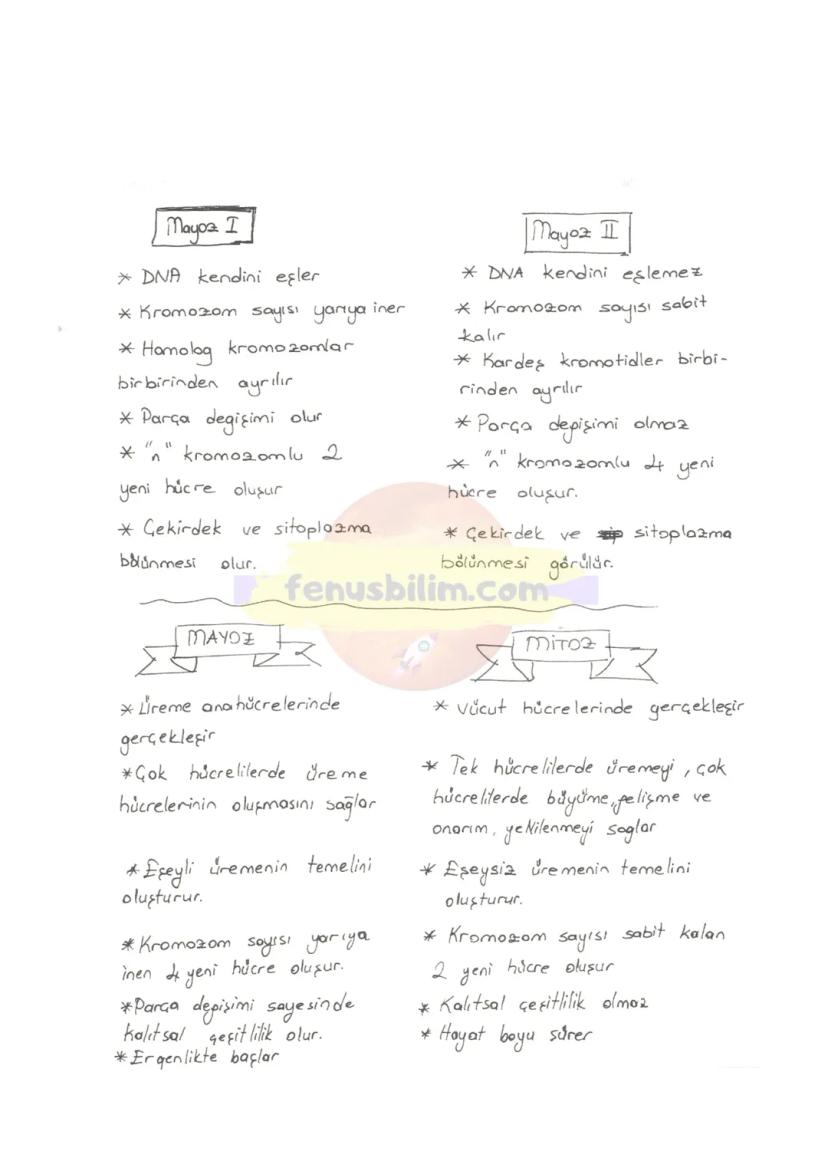 Mayoz I
* DNA kendini eşler
* Kromozom sayısı yarıya iner
* Homolog kromozomlar
birbirinden ayrılır
* Parça degişimi olur
* "n" kromozomlu 2
yeni hücre oluşur
* Çekirdek ve sitoplazma
bölünmesi olur.
Mayoz II
* DNA kendini eşlemez
* Kromozom sayısı sabit
kalır
* Kardeş kromotidler birbi-
rinden ayrılır
* Parça değişimi olmaz
* "n" kromozomlu 4 yeni
hücre oluşur.
* Çekirdek ve sitoplazma
bölünmesi görülür.
fenusbilim.com
MAYOZ
* Üreme ana hücrelerinde
gerçekleşir
* Çok hücrelilerde üreme
hücrelerinin oluşmasını sağlar
* Eşeyli üremenin temelini
oluşturur.
* Kromozom sayısı yarıya
inen 4 yeni hücre oluşur.
* Parça değişimi sayesinde
kalıtsal çeşitlilik olur.
* Ergenlikte başlar
MİTOZ
* Vücut hücrelerinde gerçekleşir
* Tek hücrelilerde üremeyi, çok
hücrelilerde büyüme, gelişme ve
onarım, yenilenmeyi saglar
* Eşeysiz üremenin temelini
oluşturur.
* Kromozom sayısı sabit kalan
2 yeni hücre oluşur
* Kalıtsal çeşitlilik olmaz
* Hayat boyu sürer